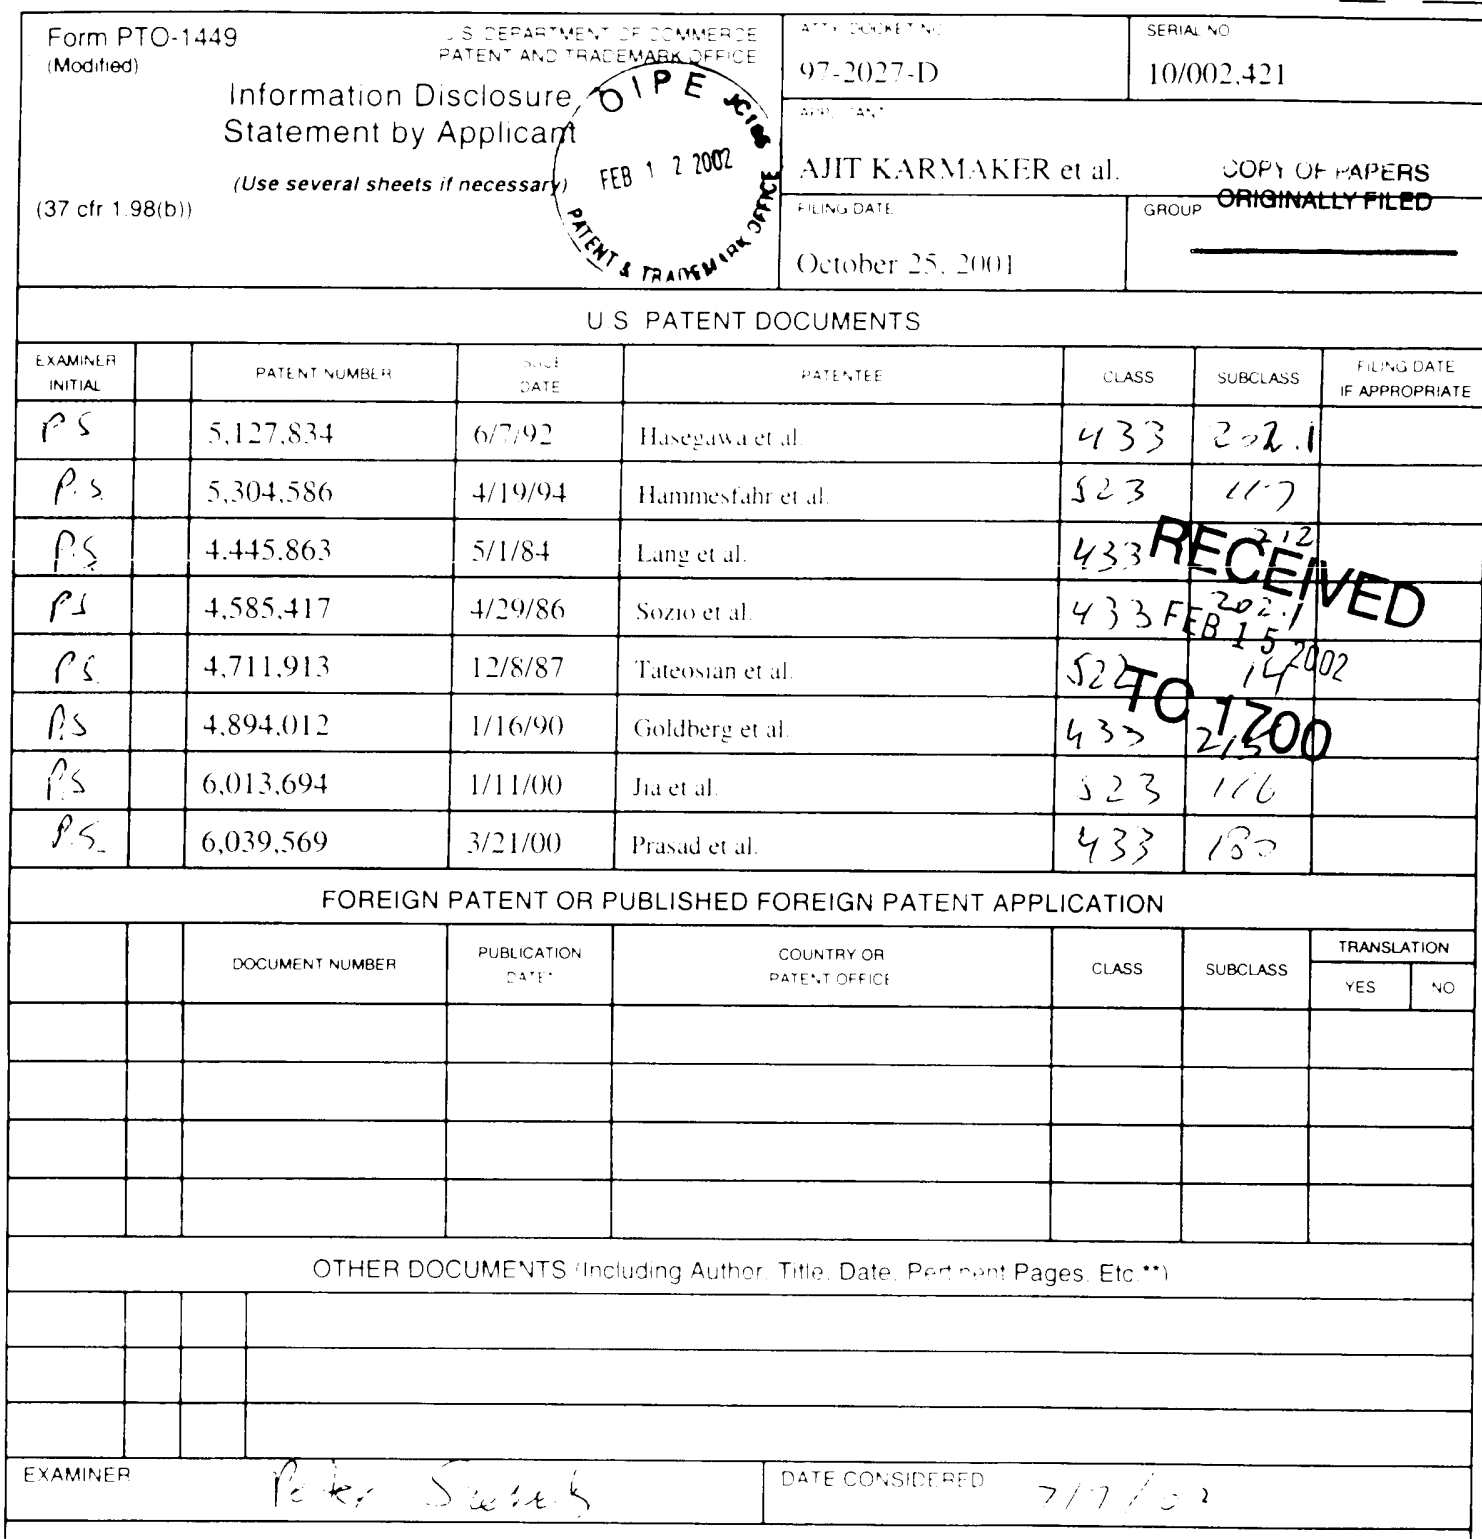 Form PTO-1449
(Modified)
U.S. DEPARTMENT OF COMMERCE
PATENT AND TRADEMARK OFFICE
Information Disclosure
Statement by Applicant
(Use several sheets if necessary)
(37 cfr 1.98(b))
OIPE JC106
FEB 12 2002
PATENT & TRADEMARK OFFICE
ATTY DOCKET NO
97-2027-D
SERIAL NO
10/002,421
APPLICANT
AJIT KARMAKER et al.
COPY OF PAPERS
ORIGINALLY FILED
FILING DATE
October 25, 2001
GROUP
U.S PATENT DOCUMENTS
EXAMINER INITIAL PATENT NUMBER ISSUE DATE PATENTEE CLASS SUBCLASS FILING DATE IF APPROPRIATE
PS 5,127,834 6/7/92 Hasegawa et al. 433 202.1
P.S. 5,304,586 4/19/94 Hammesfahr et al. 523 117
P.S 4,445,863 5/1/84 Lang et al. 433 212
PS 4,585,417 4/29/86 Sozio et al. 433 202.1
PS 4,711,913 12/8/87 Tateosian et al. 522 14
P.S 4,894,012 1/16/90 Goldberg et al. 433 215
PS 6,013,694 1/11/00 Jia et al. 523 116
P.S. 6,039,569 3/21/00 Prasad et al. 433 180
RECEIVED
FEB 15 2002
TC 1700
FOREIGN PATENT OR PUBLISHED FOREIGN PATENT APPLICATION
DOCUMENT NUMBER PUBLICATION DATE* COUNTRY OR PATENT OFFICE CLASS SUBCLASS TRANSLATION
YES NO
OTHER DOCUMENTS (Including Author, Title, Date, Pertinent Pages, Etc.**)
EXAMINER Peter
DATE CONSIDERED 7/7/02